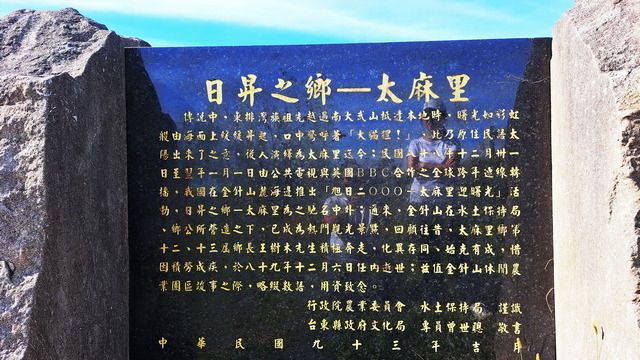 日昇之鄉—太麻里
傳說中,東排灣族祖先越過南大武山抵達本地時,曙光如彩虹
般由海面上緩緩昇起,口中驚呼著「大貓狸!」此乃原住民語太
陽出來了之意,後人演繹為太麻里迄今;民國八十八年十二月卅一
日至翌年元月一日,由公共電視與英國BBC合作之全球跨年連線轉
播,我國在金針山麓海邊推出「旭日二OOO—太麻里迎曙光」活
動,日昇之鄉—太麻里為之馳名中外;來,金針山在水土保持局
、鄉公所營造之下,已成為熱門觀光景點,回顧往昔,太麻里鄉第
十二、十三屆鄉長王樹木先生積極奔走,化異存同,始克有成,惜
因積勞成疾,於八十九年十二月六日任內逝世;茲值金針山休閒農
業園區竣事之際,略綴數語,用資致念。
行政院農業委員會 水土保持局 謹識
台東縣政府文化局 專員曾世聰 敬書
中華民國九十三年吉月